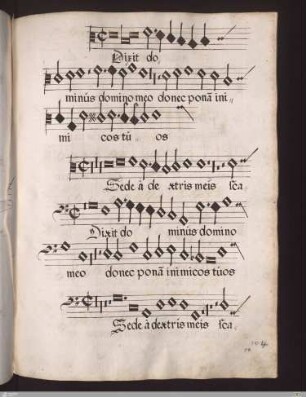 Dixit do
minus domino meo donec ponā ini
mi cos tu os
Sede ā de xtris meis sca
Dixit do minus domino
meo donec ponā inimicos tuos
Sede ā dextris meis sca